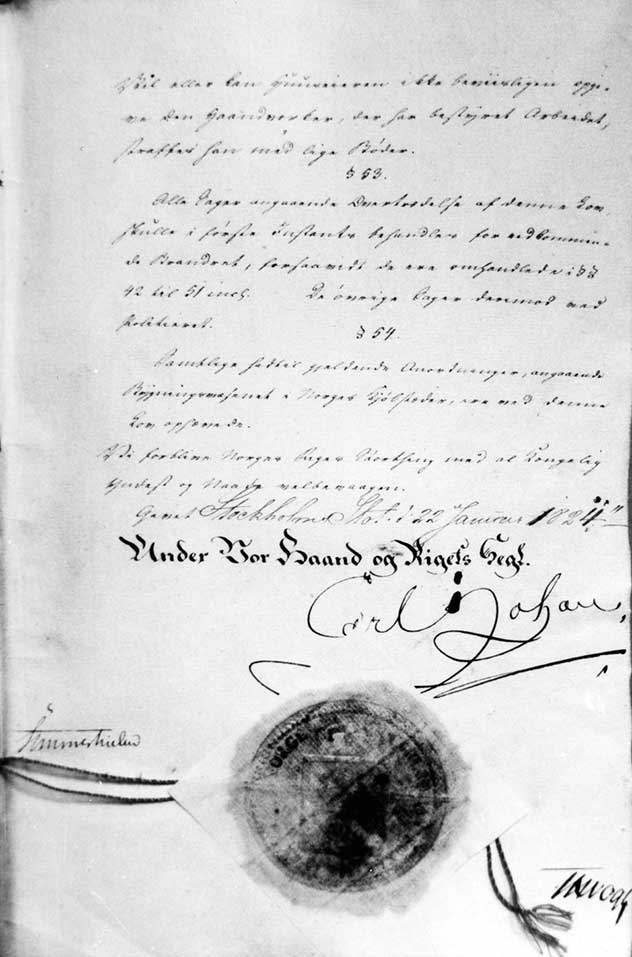 Vil eller kan Huuseieren ikke beviisligen opgi-
ve den Haandverker, der har bestyret Arbeidet,
straffes han med lige Bøder.
§ 53.
Alle Sager angaaende Overtrædelse af denne Lov
skulle i første Instants behandles for vedkommen-
de Brandret, forsaavidt de ere omhandlede i §§
42 til 51 incl. De øvrige Sager derimod ved
Politieret.
§ 54.
Samtlige hidtil gjeldende Anordninger, angaaende
Bygningsvæsenet i Norges Kjøbstæder, ere ved denne
Lov ophævede.
Vi forblive Norges Riges Storthing med al Kongelig
Yndest og Naade velbevaagen.
Givet Stockholms Slot d. 22 Januar 1824
Under Vor Haand og Rigets Segl.
Carl Johan